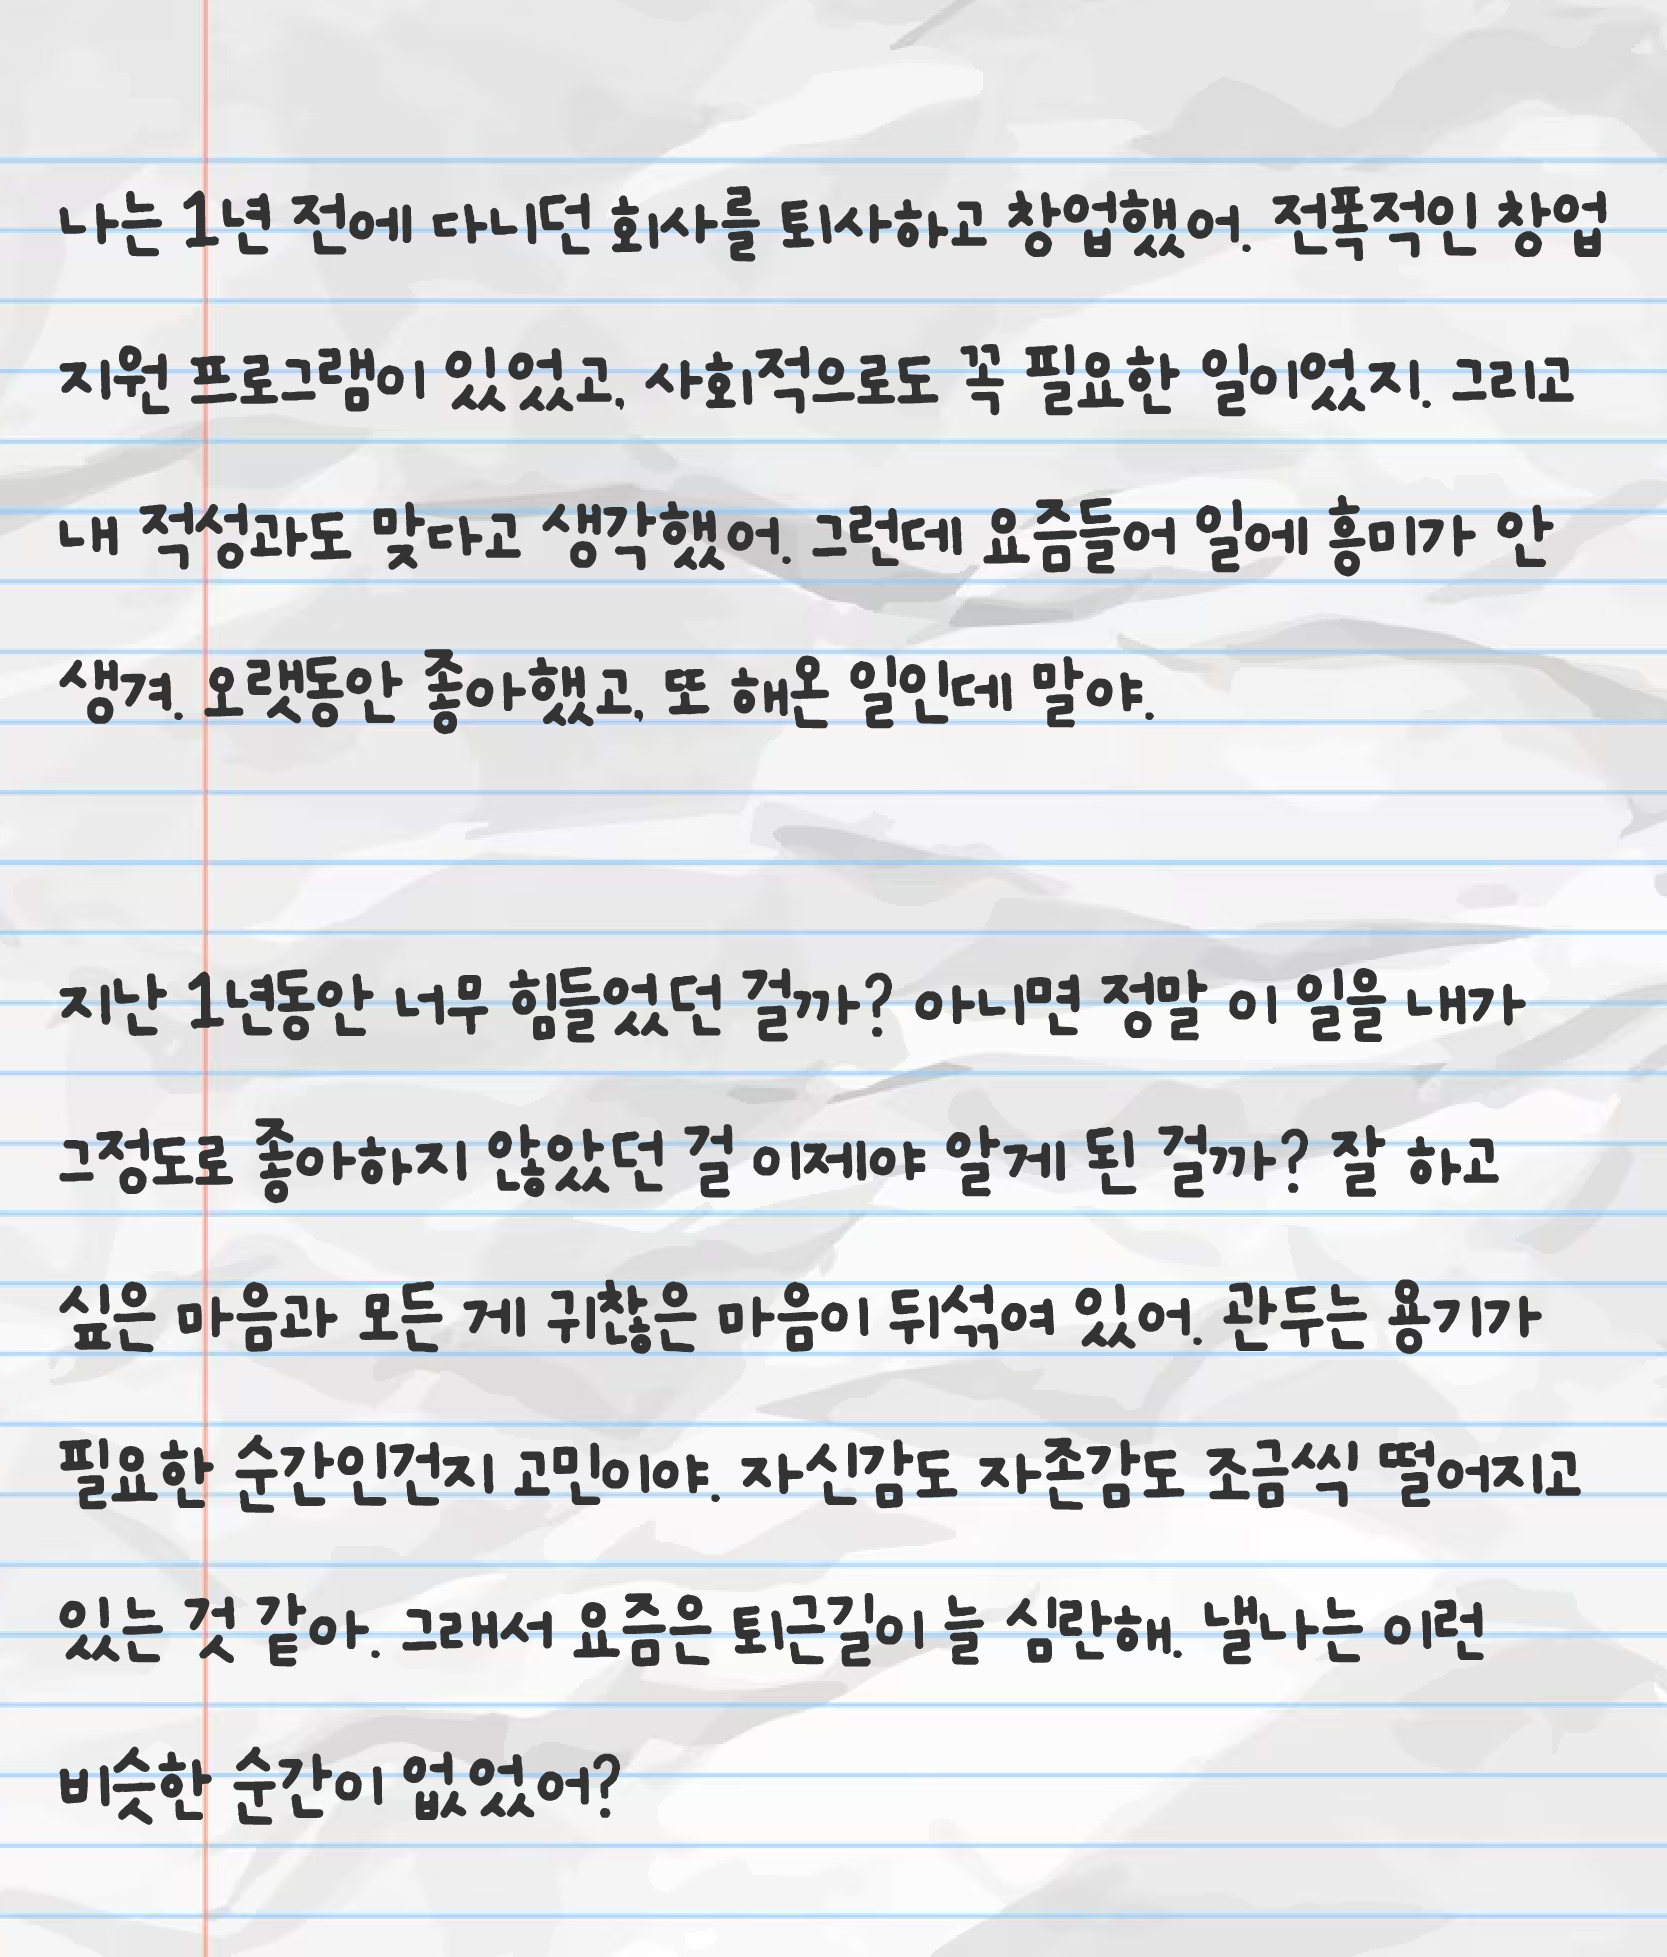 나는 1년 전에 다니던 회사를 퇴사하고 창업했어. 전폭적인 창업
지원 프로그램이 있었고, 사회적으로도 꼭 필요한 일이었지. 그리고
내 적성과도 맞다고 생각했어. 그런데 요즘들어 일에 흥미가 안
생겨. 오랫동안 좋아했고, 또 해온 일인데 말야.
지난 1년동안 너무 힘들었던 걸까? 아니면 정말 이 일을 내가
그정도로 좋아하지 않았던 걸 이제야 알게 된 걸까? 잘 하고
싶은 마음과 모든 게 귀찮은 마음이 뒤섞여 있어. 관두는 용기가
필요한 순간인건지 고민이야. 자신감도 자존감도 조금씩 떨어지고
있는 것 같아. 그래서 요즘은 퇴근길이 늘 심란해. 낼나는 이런
비슷한 순간이 없었어?